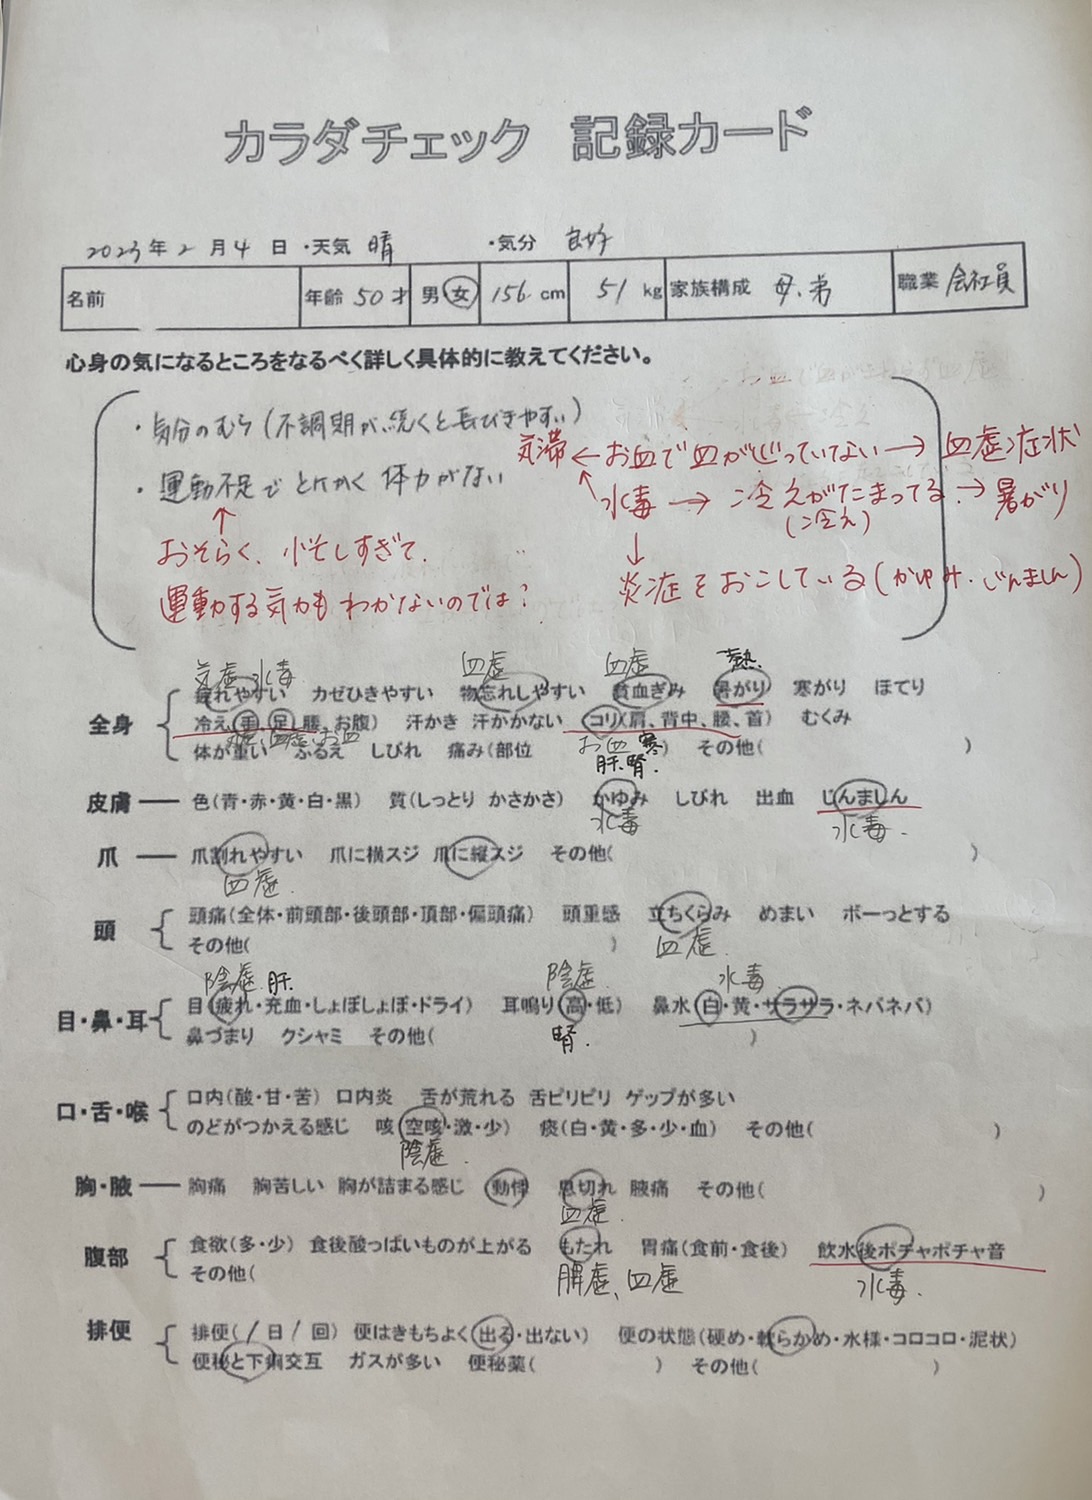 カラダチェック 記録カード
2023年2月4日 ・天気 晴 ・気分 良好
名前 年齢 50才 男 女 156 cm 51 kg 家族構成 母、弟 職業 会社員
心身の気になるところをなるべく詳しく具体的に教えてください。
・気分のむら(不調期が続くと長びきやすい)
気滞 ← お血で血が巡っていない → 血虚症状
・運動不足でとにかく体力がない
水毒 → 冷えがたまってる → 暑がり
(冷え)
おそらく、忙しすぎて、
運動する気力もわかないのでは?
炎症をおこしている(かゆみ・じんましん)
気虚 水毒 血虚 血虚 熱
全身 疲れやすい カゼひきやすい 物忘れしやすい 貧血ぎみ 暑がり 寒がり ほてり
冷え(手、足、腰、お腹) 汗かき 汗かかない コリ(肩、背中、腰、首) むくみ
血虚 お血 お血 寒
体が重い ふるえ しびれ 痛み(部位 ) その他( )
肝・腎
皮膚 ― 色(青・赤・黄・白・黒) 質(しっとり かさかさ) かゆみ しびれ 出血 じんましん
水毒 水毒
爪 ― 爪割れやすい 爪に横スジ 爪に縦スジ その他( )
血虚
頭 頭痛(全体・前頭部・後頭部・頂部・偏頭痛) 頭重感 立ちくらみ めまい ボーっとする
その他( ) 血虚
陰虚 肝 陰虚 水毒
目・鼻・耳 目(疲れ・充血・しょぼしょぼ・ドライ) 耳鳴り(高・低) 鼻水(白・黄・サラサラ・ネバネバ)
鼻づまり クシャミ その他( )
腎
口・舌・喉 口内(酸・甘・苦) 口内炎 舌が荒れる 舌ピリピリ ゲップが多い
のどがつかえる感じ 咳(空咳・激・少) 痰(白・黄・多・少・血) その他( )
陰虚
胸・腋 ― 胸痛 胸苦しい 胸が詰まる感じ 動悸 息切れ 腋痛 その他( )
血虚
腹部 食欲(多・少) 食後酸っぱいものが上がる もたれ 胃痛(食前・食後) 飲水後ポチャポチャ音
その他( 脾虚、血虚 水毒
排便 排便(1日1回) 便はきもちよく(出る・出ない) 便の状態(硬め・軟らかめ・水様・コロコロ・泥状)
便秘と下痢交互 ガスが多い 便秘薬( ) その他( )